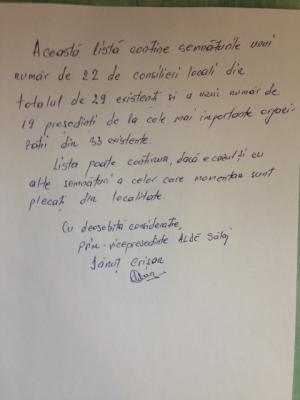 Această listă conține semnăturile unui
număr de 22 de consilieri locali din
totalul de 29 existenți și a unui număr de
19 președinți de la cele mai importante organi-
zații din 33 existente.
Lista poate continua, dacă e cazul și cu
alte semnături a celor care momentan sunt
plecați din localitate.
Cu deosebită considerație,
Prim-vicepreședinte ALDE Sălaj
Dănuț Crișan